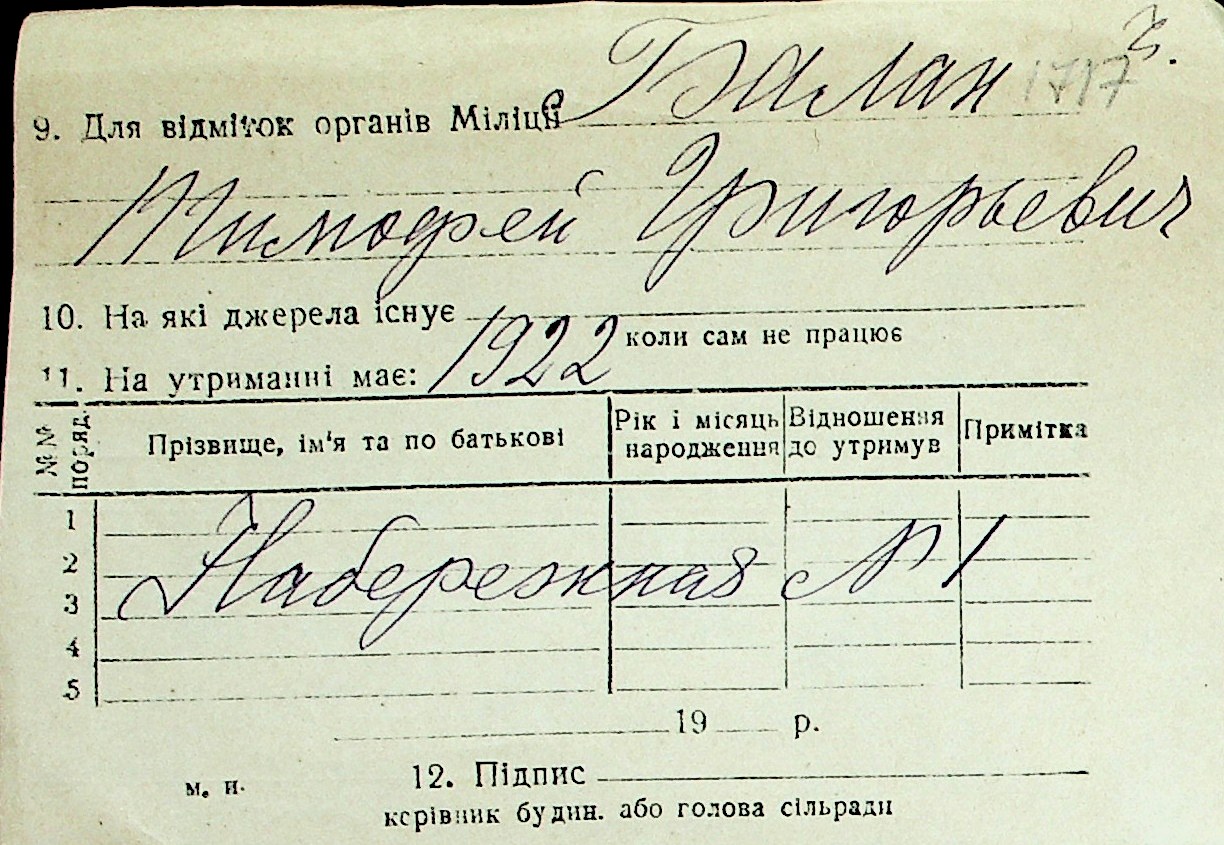 9. Для відміток органів Міліції Балан 1717
Тимофей Григорьевич
10. На які джерела існує
1922 коли сам не працює
11. На утриманні має:
№№ поряд. Прізвище, ім'я та по батькові Рік і місяць народження Відношення до утримув Примітка
1
2 Набережная № 1
3
4
5
19 р.
м. п. 12. Підпис
керівник будин. або голова сільради